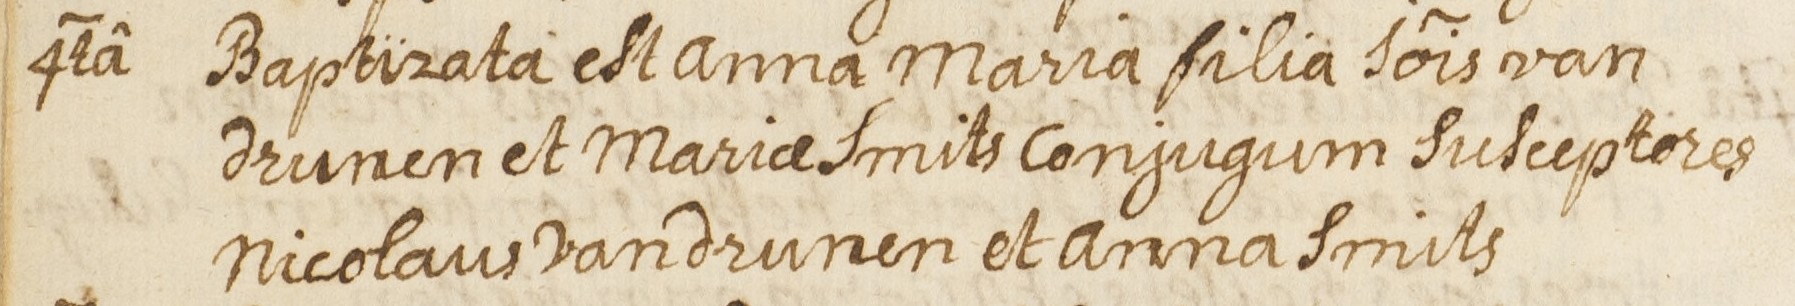 4tâ Baptizata est Anna Maria filia Jōis van
drunen et Mariæ Smits Conjugum Susceptores
Nicolaus van drunen et Anna Smits